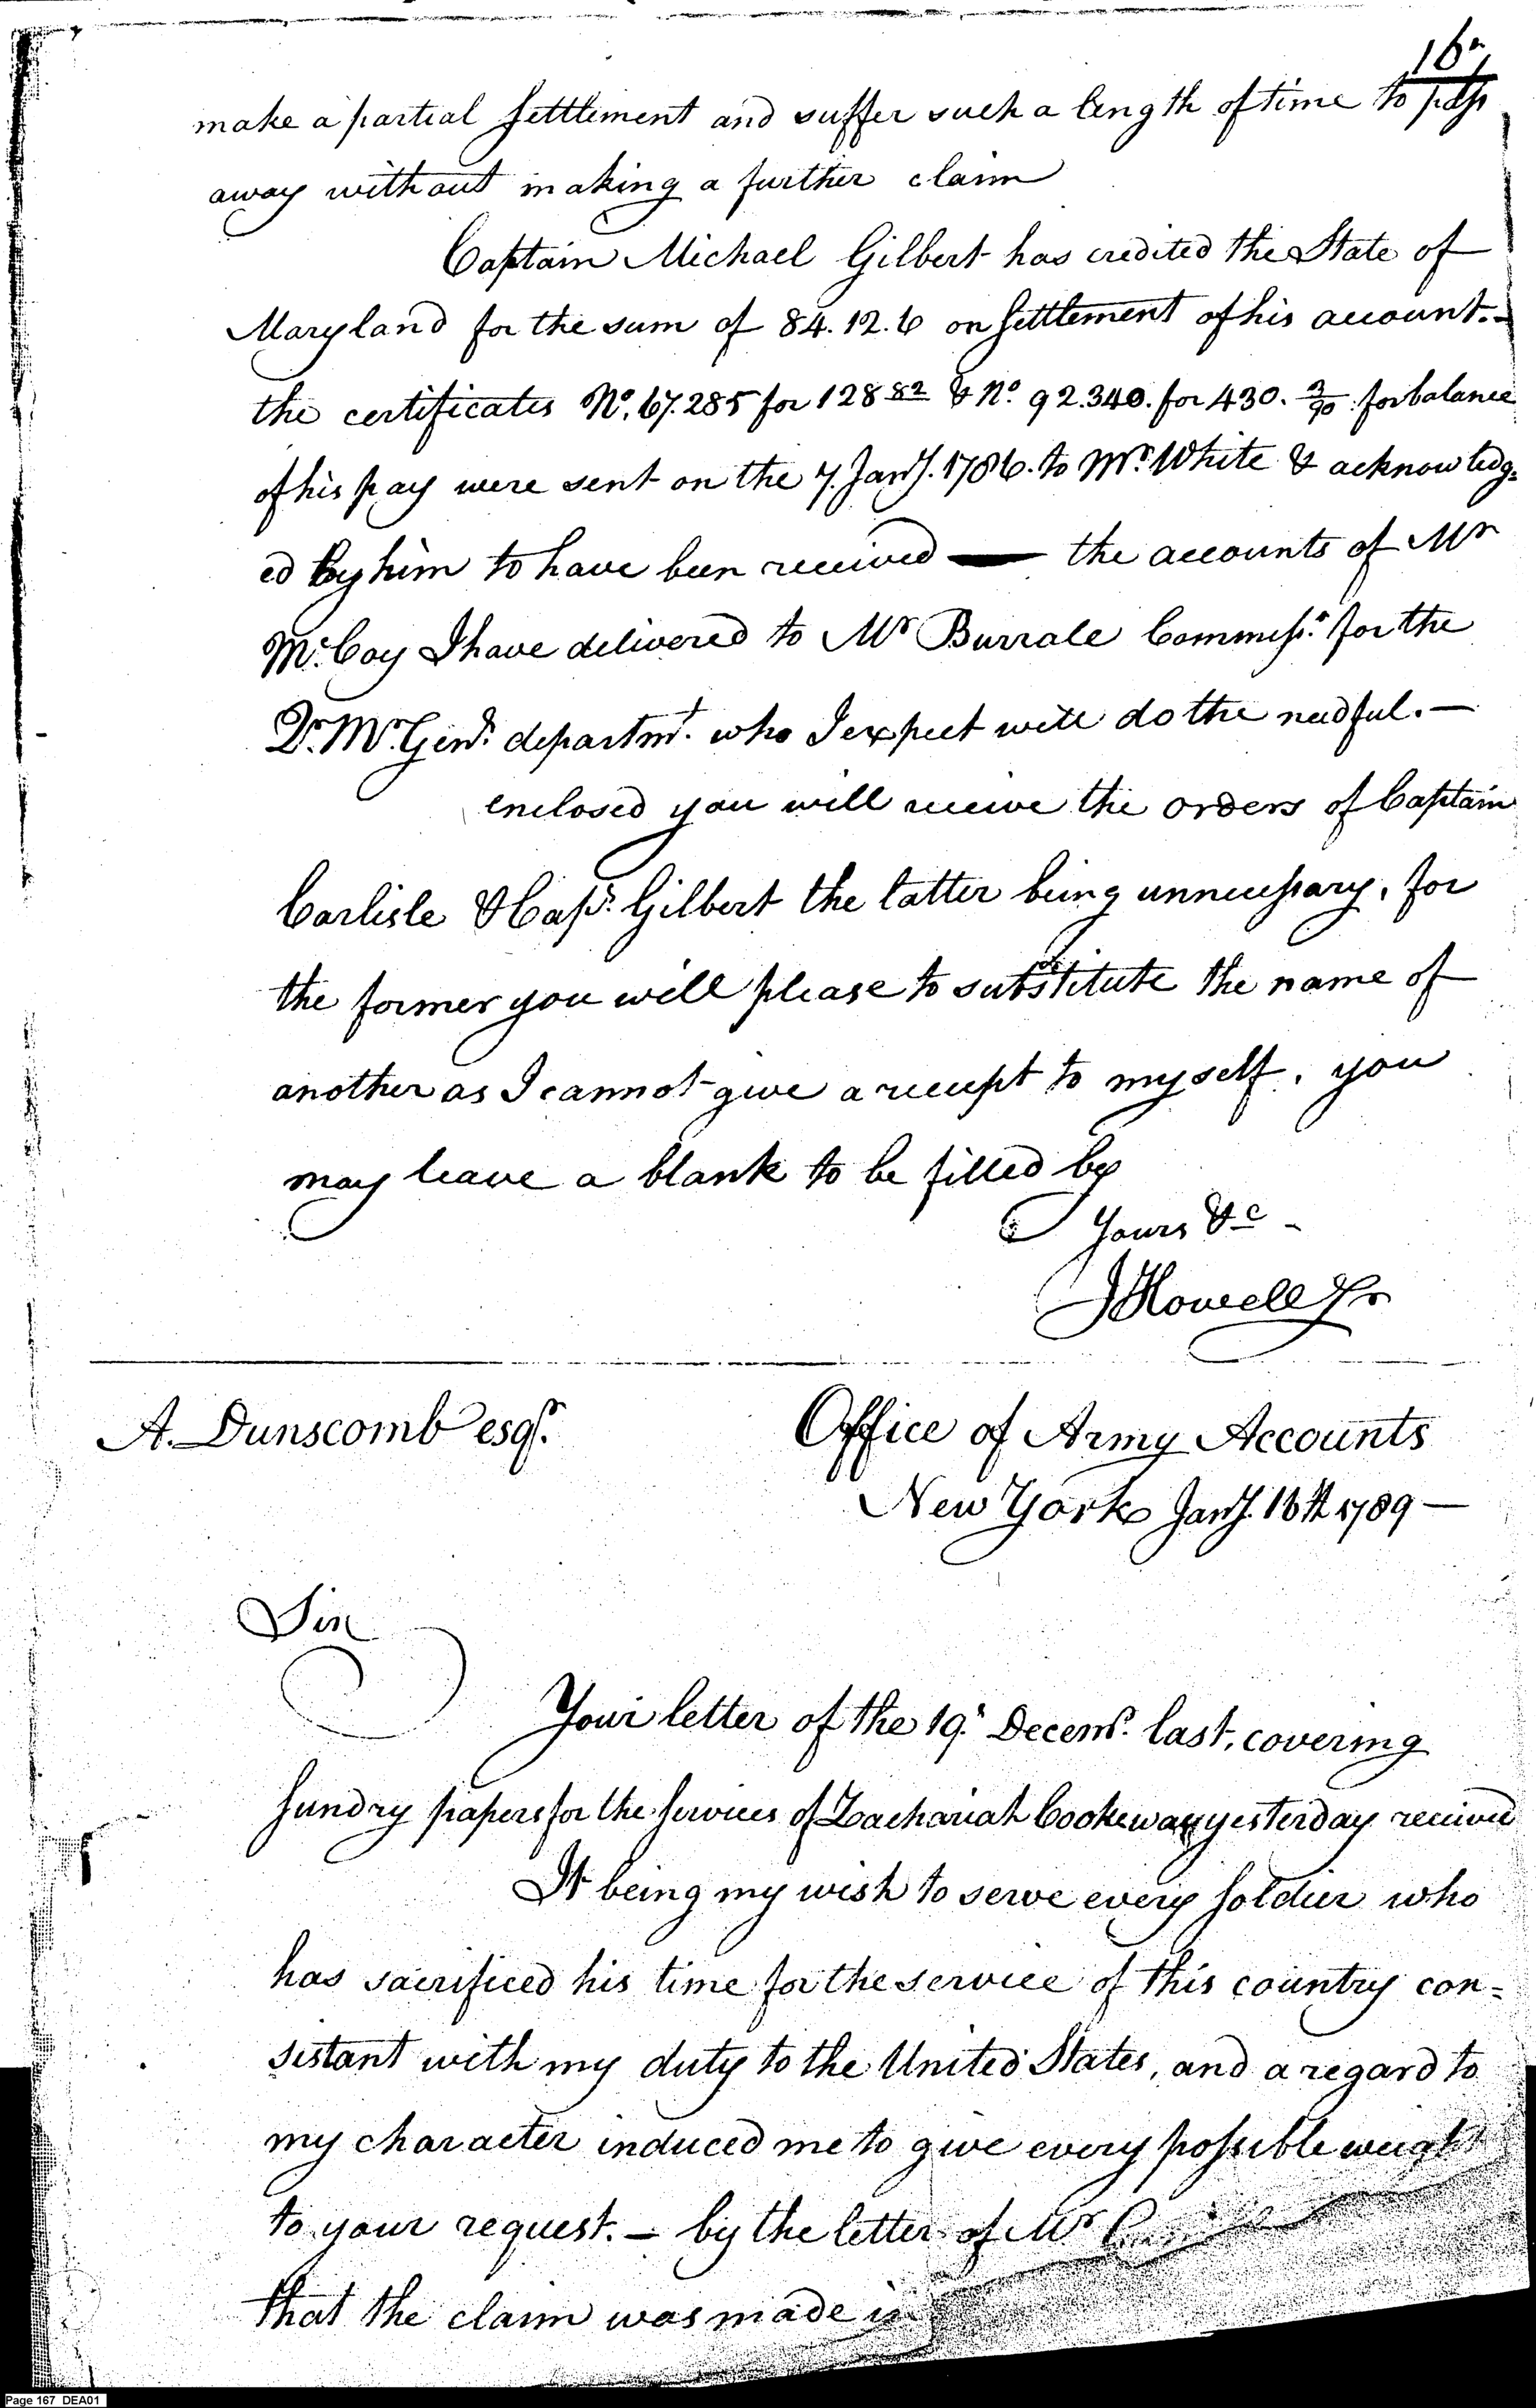 16
make a partial settlement and suffer such a length of time to pass
away without making a further claim
Captain Michael Gilbert has credited the State of
Maryland for the sum of 84.12.6 on settlement of his account.-
the certificates No. 67.285 for 128 82 & No. 92.340. for 430. 3/90 for balance
of his pay were sent on the 7. Jany. 1786. to Mr. White & acknowledg=
ed by him to have been received — the accounts of Mr
McCoy I have delivered to Mr Burrale Commissr. for the
Qr. Mr. Genrs. departmt. who I expect will do the needful. —
enclosed you will receive the orders of Captain
Carlisle & Capt. Gilbert the latter being unnecessary, for
the former you will please to substitute the name of
another as I cannot give a receipt to myself. you
may leave a blank to be filled by
Yours &c -
JHowell Jr
A. Dunscomb esqr.
Office of Army Accounts
New York Jany. 16th 1789 —
Sir
Your letter of the 19. Decemr. last, covering
sundry papers for the services of Zachariah Cooke was yesterday received
It being my wish to serve every soldier who
has sacrificed his time for the service of this country con=
sistant with my duty to the United States, and a regard to
my character induced me to give every possible weight
to your request. — by the letter of Mr
that the claim was made in
Page 167 DEA01